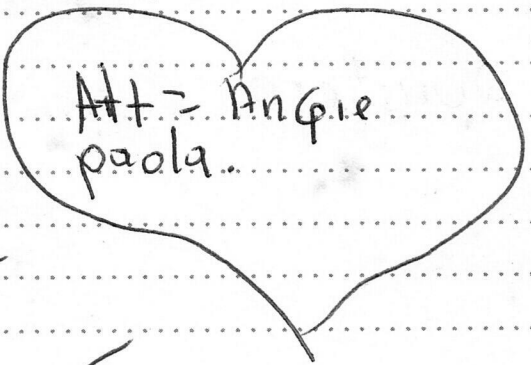 Att = Angie
paola.